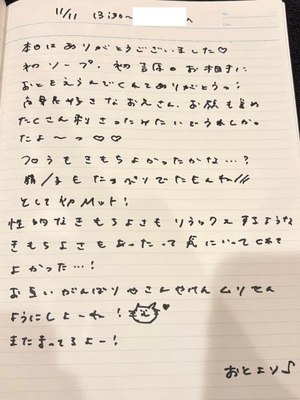 11/11 13:30〜
本日はありがとうございました♡
初ソープ、初 のお相手に
おとをえらんでくれてありがとうっ!
高身長好きなおえさん、お顔も含め
たくさん刺さったみたいでうれしかっ
たよ〜っ♡♡
フロうもきもちよかったかな…?
精/子もたっぷりでたもんね///
そして初Mット!
性的なきもちよさもリラックスするような
きもちよさもあったって気にいってくれて
よかった…!
お互いがんばりやさん ムリせん
ようにしよーね!
またまってるよー!
おとより♪